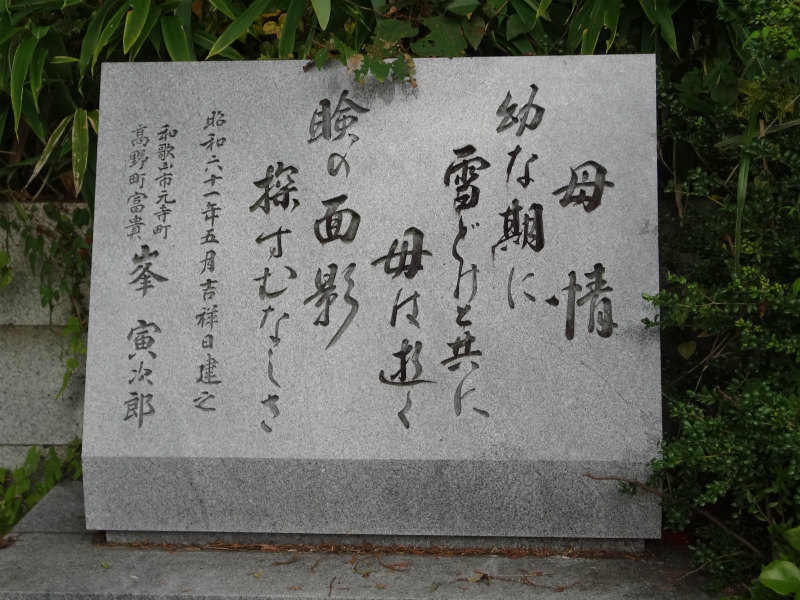 母情
幼な期に
雪どけと共に
母は逝く
瞼の面影
探すむなしさ
昭和六十一年五月吉祥日建之
和歌山市元寺町
高野町富貴
峯 寅次郎